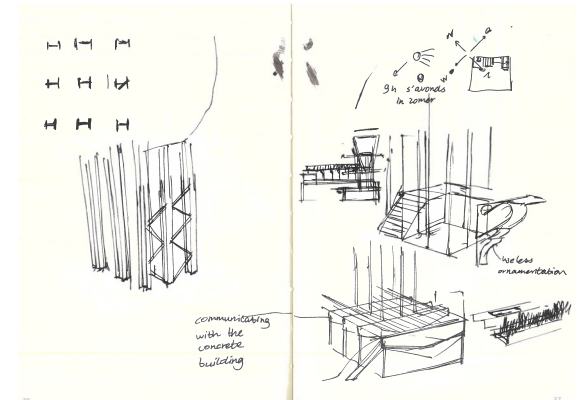 N
9h s'avonds
in zomer
useless
ornamentation
communicating
with the
concrete
building